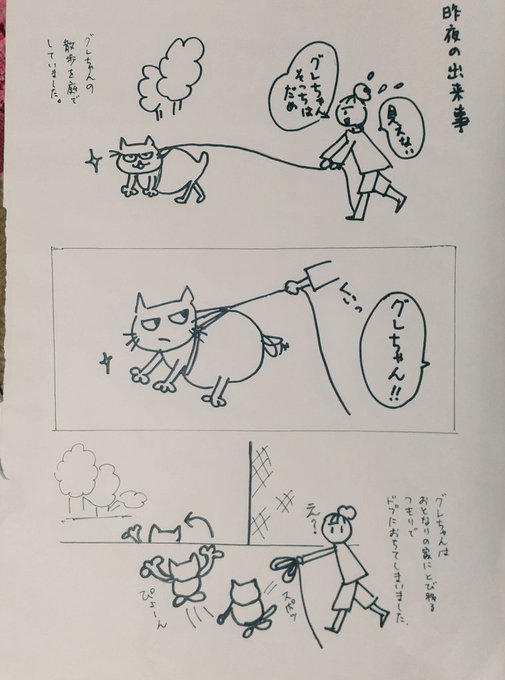 昨夜の出来事
見えない
グレちゃん
そっちは
だめ
グレちゃんの
散歩を庭で
していました。
グレちゃん!!
ぐいっ
グレちゃんは
おとなりの家にとび移る
つもりで
ドブにおちてしまいました。
え?
スポッ
ぴょーん